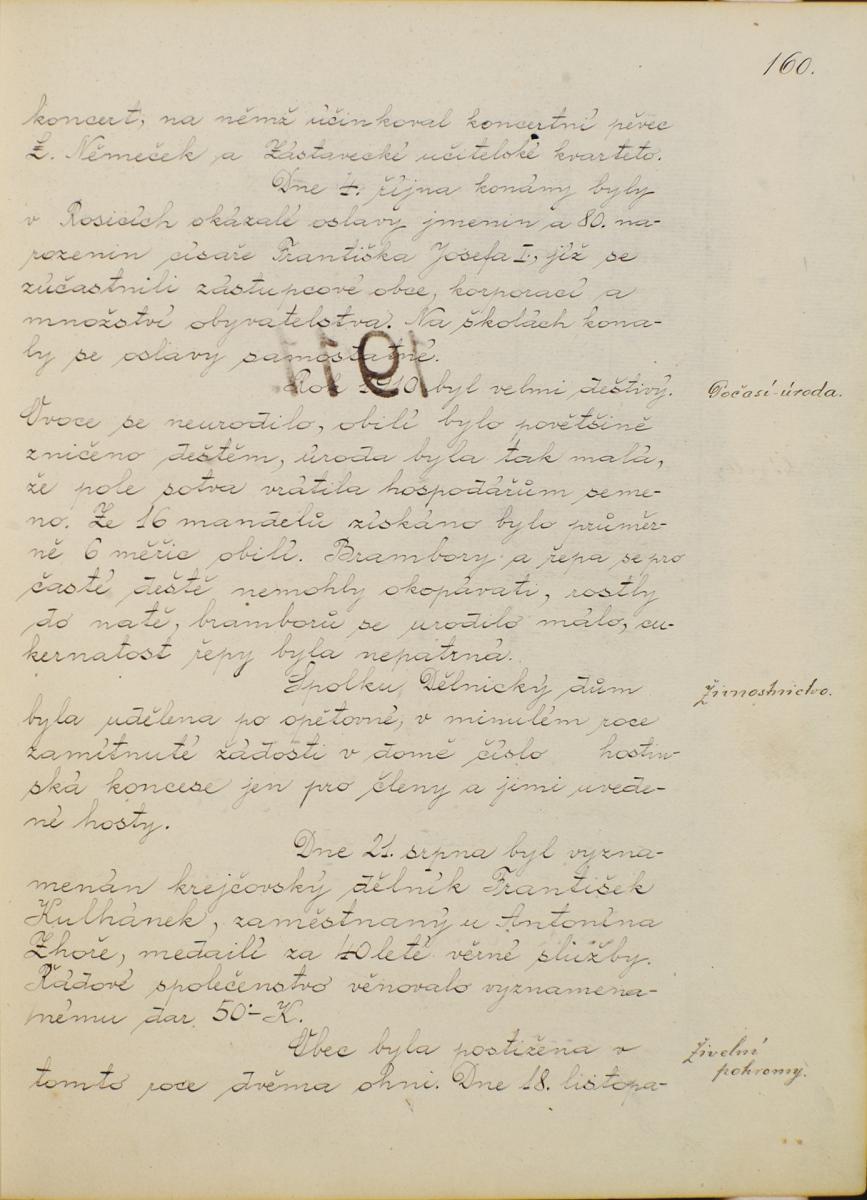 160.
koncert, na němž účinkoval koncertní pěvec
Z. Němeček a Zástavecké učitelské kvarteto.
Dne 4. října konány byly
v Rosicích okázalé oslavy jmenin a 80. na-
rozenin císaře Františka Josefa I., jíž se
zúčastnili zástupcové obce, korporací a
množství obyvatelstva. Na školách kona-
ly se oslavy samostatné.
Rok 1910 byl velmi deštivý.
Počasí-úroda.
Ovoce se neurodilo, obilí bylo povětšině
zničeno deštěm, úroda byla tak malá,
že pole sotva vrátila hospodářům seme-
no. Ze 16 mandelů získáno bylo průměr-
ně 6 měřic obilí. Brambory a řepa se pro
časté deště nemohly okopávati, rostly
do natě, bramborů se urodilo málo, cu-
kernatost řepy byla nepatrná.
Spolku Dělnický dům
Živnostnictvo.
byla udělena po opětovné, v minulém roce
zamítnuté žádosti v domě číslo hostin-
ská koncese jen pro členy a jimi uvede-
né hosty.
Dne 21. srpna byl vyzna-
menán krejčovský dělník František
Kulhánek, zaměstnaný u Antonína
Zhoře, medailí za 40leté věrné služby.
Řádové společenstvo věnovalo vyznamena-
nému dar 50·- K.
Obec byla postižena v
Živelní
pohromy.
tomto roce dvěma ohni. Dne 18. listopa-